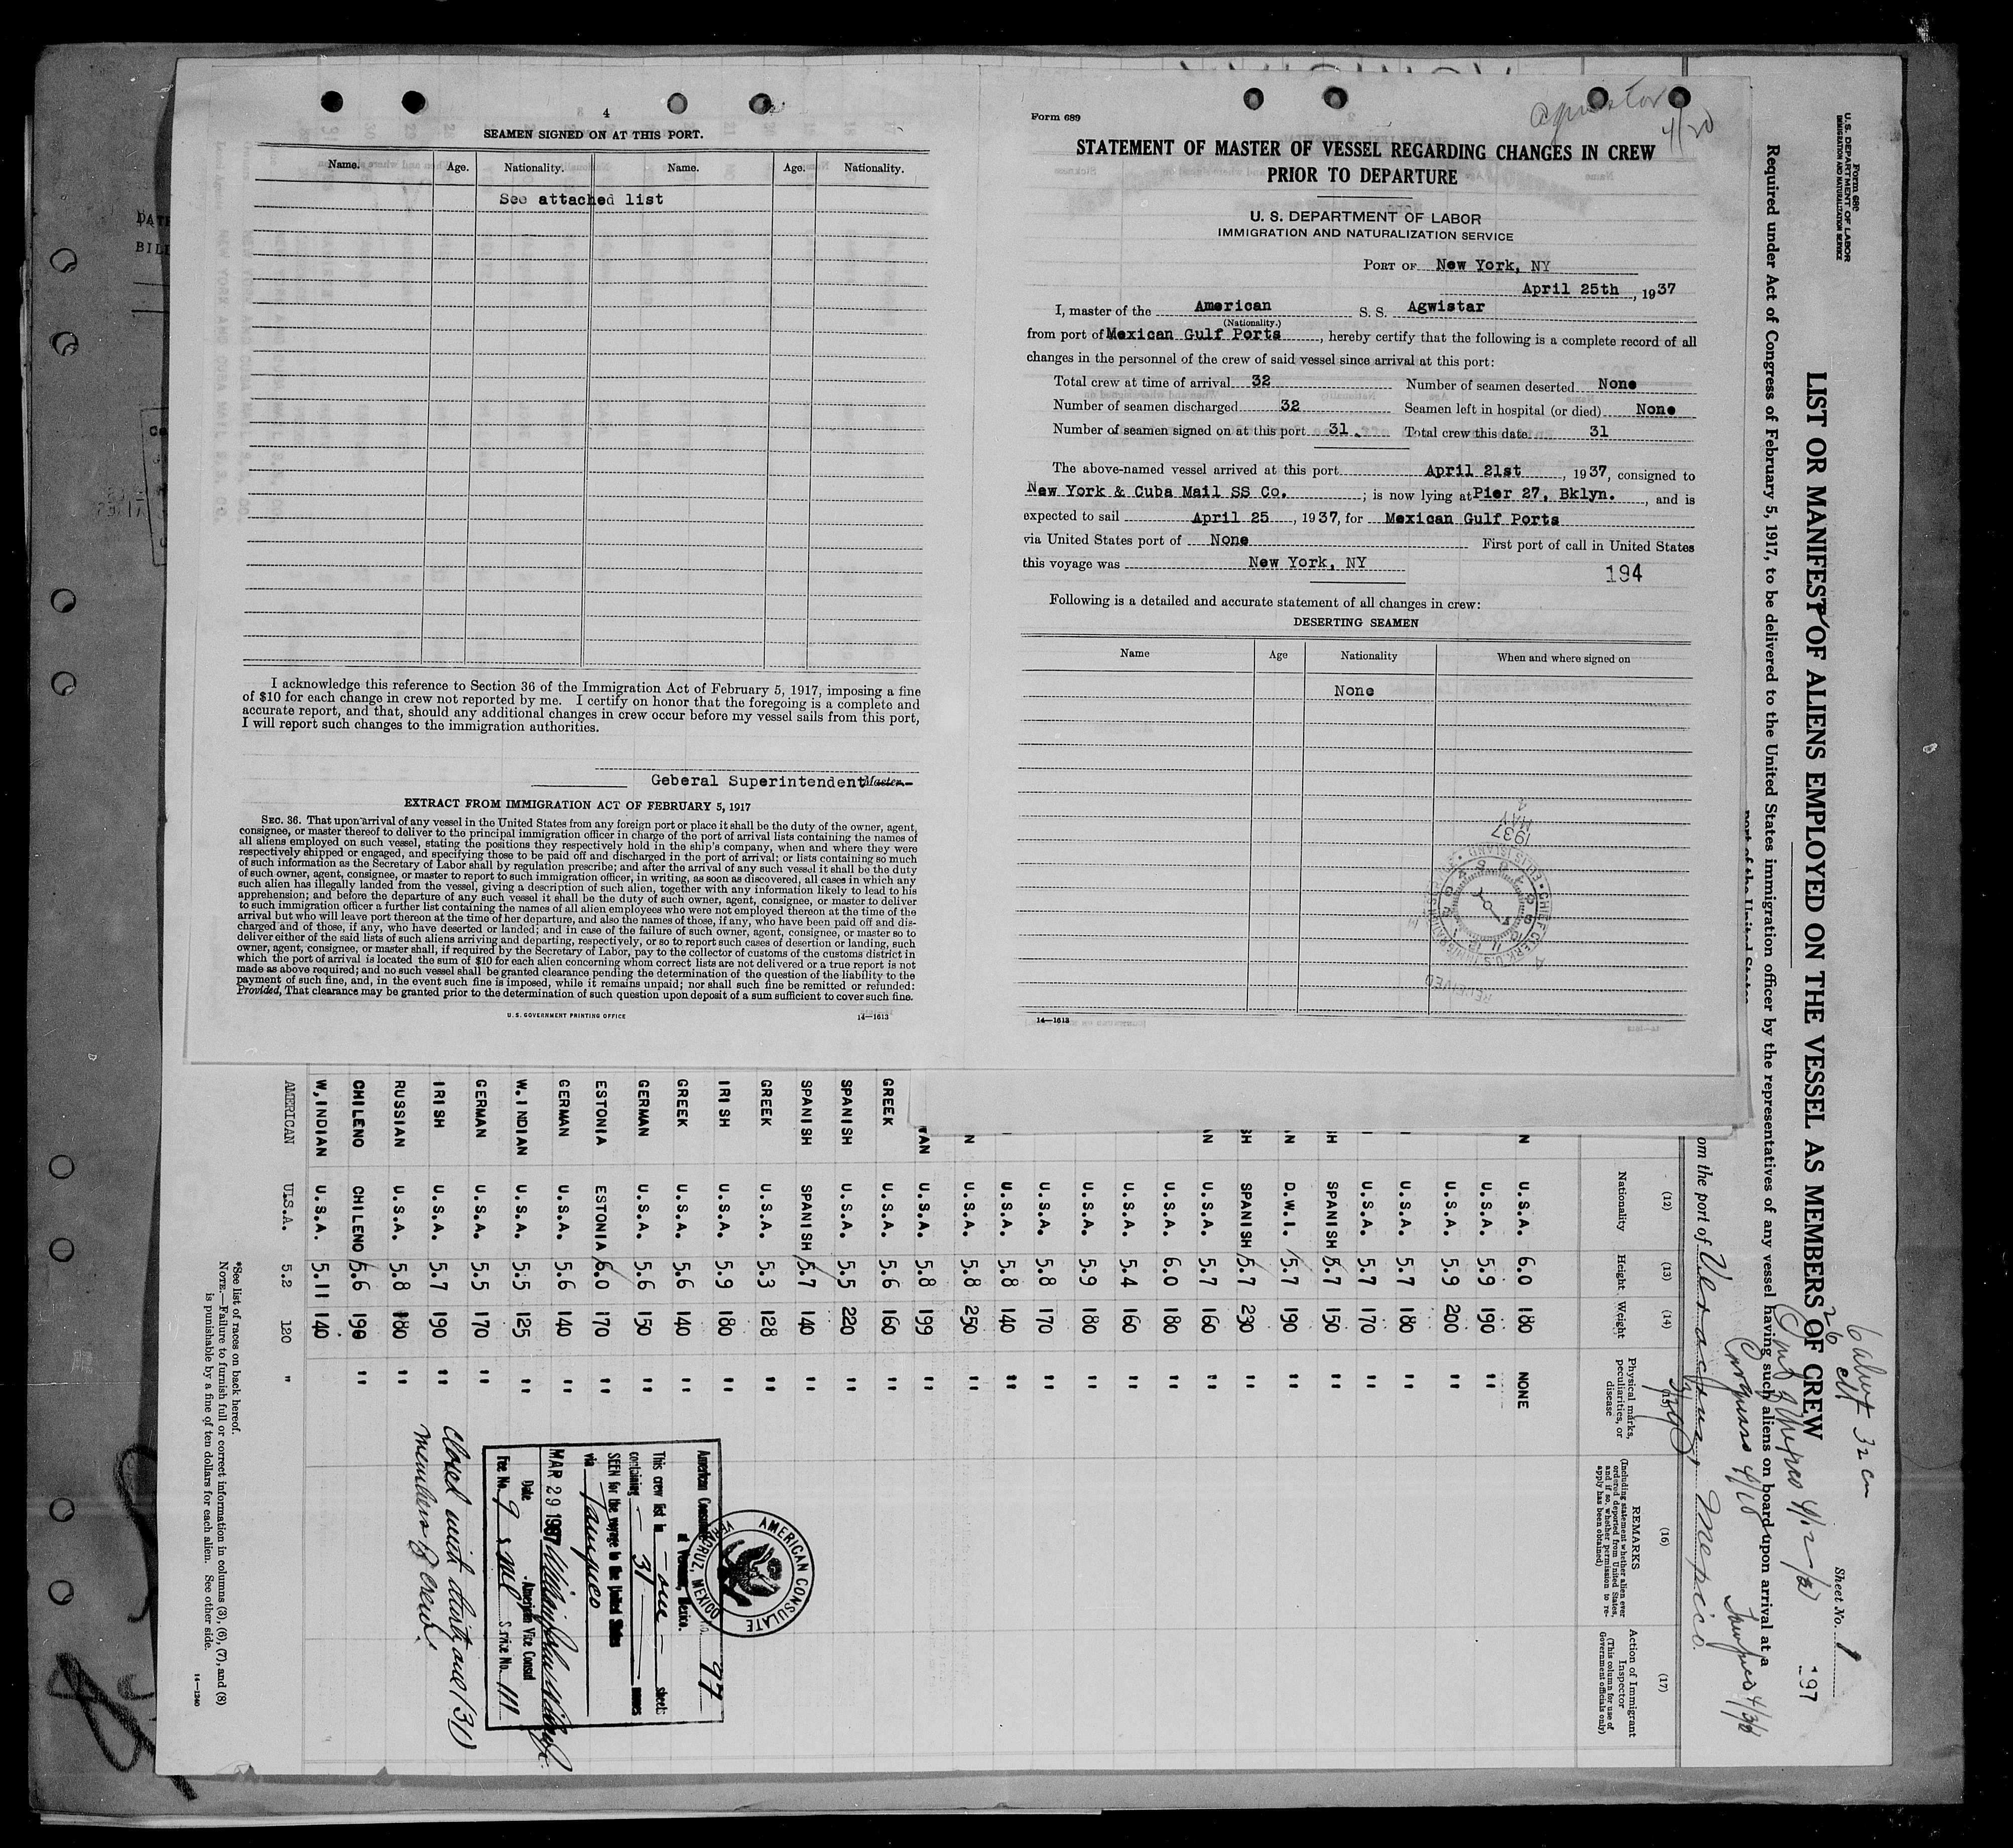 4
SEAMEN SIGNED ON AT THIS PORT.
Name. Age. Nationality. Name. Age. Nationality.
See attached list
I acknowledge this reference to Section 36 of the Immigration Act of February 5, 1917, imposing a fine
of $10 for each change in crew not reported by me. I certify on honor that the foregoing is a complete and
accurate report, and that, should any additional changes in crew occur before my vessel sails from this port,
I will report such changes to the immigration authorities.
Geberal Superintendent Master.
EXTRACT FROM IMMIGRATION ACT OF FEBRUARY 5, 1917
SEC. 36. That upon arrival of any vessel in the United States from any foreign port or place it shall be the duty of the owner, agent,
consignee, or master thereof to deliver to the principal immigration officer in charge of the port of arrival lists containing the names of
all aliens employed on such vessel, stating the positions they respectively hold in the ship's company, when and where they were
respectively shipped or engaged, and specifying those to be paid off and discharged in the port of arrival; or lists containing so much
of such information as the Secretary of Labor shall by regulation prescribe; and after the arrival of any such vessel it shall be the duty
of such owner, agent, consignee, or master to report to such immigration officer, in writing, as soon as discovered, all cases in which any
such alien has illegally landed from the vessel, giving a description of such alien, together with any information likely to lead to his
apprehension; and before the departure of any such vessel it shall be the duty of such owner, agent, consignee, or master to deliver
to such immigration officer a further list containing the names of all alien employees who were not employed thereon at the time of the
arrival but who will leave port thereon at the time of her departure, and also the names of those, if any, who have been paid off and dis-
charged and of those, if any, who have deserted or landed; and in case of the failure of such owner, agent, consignee, or master so to
deliver either of the said lists of such aliens arriving and departing, respectively, or so to report such cases of desertion or landing, such
owner, agent, consignee, or master shall, if required by the Secretary of Labor, pay to the collector of customs of the customs district in
which the port of arrival is located the sum of $10 for each alien concerning whom correct lists are not delivered or a true report is not
made as above required; and no such vessel shall be granted clearance pending the determination of the question of the liability to the
payment of such fine, and, in the event such fine is imposed, while it remains unpaid; nor shall such fine be remitted or refunded:
Provided, That clearance may be granted prior to the determination of such question upon deposit of a sum sufficient to cover such fine.
U. S. GOVERNMENT PRINTING OFFICE 14—1613
Form 689
4/20
STATEMENT OF MASTER OF VESSEL REGARDING CHANGES IN CREW
PRIOR TO DEPARTURE
U. S. DEPARTMENT OF LABOR
IMMIGRATION AND NATURALIZATION SERVICE
PORT OF New York, NY
April 25th, 1937
I, master of the American S. S. Agwistar
(Nationality.)
from port of Mexican Gulf Ports, hereby certify that the following is a complete record of all
changes in the personnel of the crew of said vessel since arrival at this port:
Total crew at time of arrival 32 Number of seamen deserted None
Number of seamen discharged 32 Seamen left in hospital (or died) None
Number of seamen signed on at this port 31. Total crew this date 31
The above-named vessel arrived at this port April 21st, 1937, consigned to
New York & Cuba Mail SS Co.; is now lying at Pier 27, Bklyn., and is
expected to sail April 25, 1937, for Mexican Gulf Ports
via United States port of None First port of call in United States
this voyage was New York, NY
194
Following is a detailed and accurate statement of all changes in crew:
DESERTING SEAMEN
Name Age Nationality When and where signed on
None
1937
MAY
4
RECEIVED
14—1613
Form 680
U. S. DEPARTMENT OF LABOR
IMMIGRATION AND NATURALIZATION SERVICE
Sheet No. 1
197
LIST OR MANIFEST OF ALIENS EMPLOYED ON THE VESSEL AS MEMBERS OF CREW
Required under Act of Congress of February 5, 1917, to be delivered to the United States immigration officer by the representatives of any vessel having such aliens on board upon arrival at a
port of the United States
om the port of Veracruz, Mexico
Tampico 4/3/37
(12) (13) (14) (15) (16) (17)
Nationality Height Weight Physical marks, peculiarities, or disease
REMARKS
(Including statement whether alien ever ordered deported from United States, and if so, whether permission to re-apply has been obtained)
Action of Immigrant Inspector
(This column for use of Government officials only)
N U.S.A. 6.0 180 NONE
U.S.A. 5.9 190 "
U.S.A. 5.9 200 "
U.S.A. 5.7 180 "
U.S.A. 5.7 170 "
SH SPANISH 5.7 150 "
N D.W.I. 5.7 190 "
SH SPANISH 5.7 230 "
N U.S.A. 5.7 160 "
U.S.A. 6.0 180 "
U.S.A. 5.4 160 "
U.S.A. 5.9 180 "
U.S.A. 5.8 170 "
U.S.A. 5.8 140 "
N U.S.A. 5.8 250 "
AN U.S.A. 5.8 199 "
GREEK U.S.A. 5.6 160 "
SPANISH U.S.A. 5.5 220 "
SPANISH SPANISH 5.7 140 "
GREEK U.S.A. 5.3 128 "
IRISH U.S.A. 5.9 180 "
GREEK U.S.A. 5.6 140 "
GERMAN U.S.A. 5.6 150 "
ESTONIA ESTONIA 6.0 170 "
GERMAN U.S.A. 5.6 140 "
W.INDIAN U.S.A. 5.5 125 "
GERMAN U.S.A. 5.5 170 "
IRISH U.S.A. 5.7 190 "
RUSSIAN U.S.A. 5.8 180 "
CHILENO CHILENO 5.6 190 "
W,INDIAN U.S.A. 5.11 140
AMERICAN U.S.A. 5.2 120 "
AMERICAN CONSULATE
VERACRUZ, MEXICO
No. 97
American Consulate
at Veracruz, Mexico.
This crew list in one sheets
containing 31 names
SEEN for the voyage to the United States
via Tampico
MAR 29 1937
Date American Vice Consul
Fee No. 9 Service No. 111
Closed with thirty one (31)
members of crew.
*See list of races on back hereof.
NOTE.—Failure to furnish full or correct information in columns (3), (6), (7), and (8)
is punishable by a fine of ten dollars for each alien. See other side.
14—1240